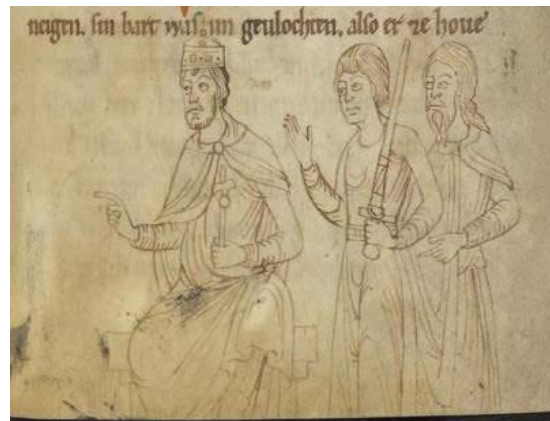 neigen. ſin bart waſ im geulochten. alſo er ze houe